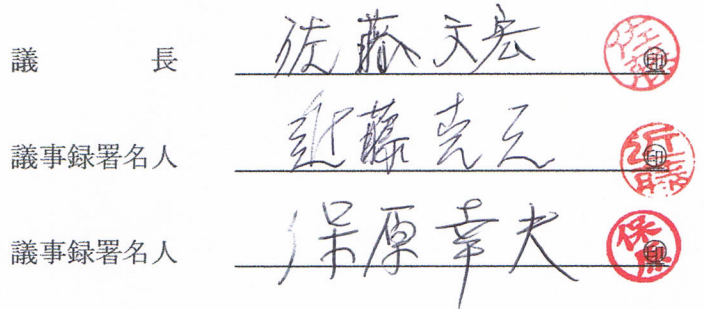 議長 佐藤文宏 佐藤 ㊞
議事録署名人 近藤克元 近藤 ㊞
議事録署名人 保原幸夫 保原 ㊞